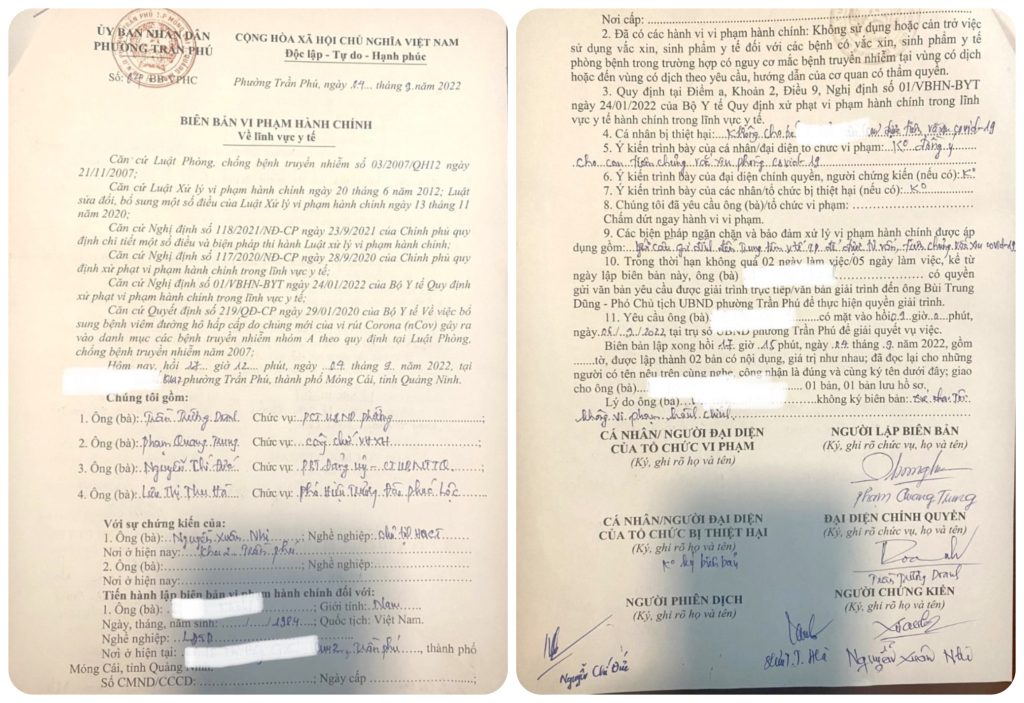 ỦY BAN NHÂN DÂN
PHƯỜNG TRẦN PHÚ
Số: /BB-VPHC
CỘNG HÒA XÃ HỘI CHỦ NGHĨA VIỆT NAM
Độc lập - Tự do - Hạnh phúc
Phường Trần Phú, ngày .04... tháng 9. năm 2022
BIÊN BẢN VI PHẠM HÀNH CHÍNH
Về lĩnh vực y tế
Căn cứ Luật Phòng, chống bệnh truyền nhiễm số 03/2007/QH12 ngày
21/11/2007;
Căn cứ Luật Xử lý vi phạm hành chính ngày 20 tháng 6 năm 2012; Luật
sửa đổi, bổ sung một số điều của Luật Xử lý vi phạm hành chính ngày 13 tháng 11
năm 2020;
Căn cứ Nghị định số 118/2021/NĐ-CP ngày 23/9/2021 của Chính phủ quy
định chi tiết một số điều và biện pháp thi hành Luật xử lý vi phạm hành chính;
Căn cứ Nghị định số 117/2020/NĐ-CP ngày 28/9/2020 của Chính phủ quy
định xử phạt vi phạm hành chính trong lĩnh vực y tế;
Căn cứ Nghị định số 01/VBHN-BYT ngày 24/01/2022 của Bộ Y tế Quy định
xử phạt vi phạm hành chính trong lĩnh vực y tế;
Căn cứ Quyết định số 219/QĐ-CP ngày 29/01/2020 của Bộ Y tế Về việc bổ
sung bệnh viêm đường hô hấp cấp do chủng mới của vi rút Corona (nCov) gây ra
vào danh mục các bệnh truyền nhiễm nhóm A theo quy định tại Luật Phòng,
chống bệnh truyền nhiễm năm 2007;
Hôm nay, hồi 17. giờ 12.... phút, ngày ...04. tháng ..9. năm 2022, tại
phường Trần Phú, thành phố Móng Cái, tỉnh Quảng Ninh.
Chúng tôi gồm:
1. Ông (bà): Trần Trường Doanh Chức vụ: PCT UBND phường
2. Ông (bà): Phạm Quang Trung Chức vụ: công chức VHXH
3. Ông (bà): Nguyễn Chí Đức Chức vụ: PBT Đảng ủy - CT UBMTTQ
4. Ông (bà): Liêu Thị Thu Hà Chức vụ: Phó Hiệu Trưởng Đào Phúc Lộc
Với sự chứng kiến của:
1. Ông (bà): Nguyễn Xuân Nhì; Nghề nghiệp:
Nơi ở hiện nay: Khu 2 Trần phú
2. Ông (bà):; Nghề nghiệp:
Nơi ở hiện nay:
Tiến hành lập biên bản vi phạm hành chính đối với:
1. Ông (bà): ; Giới tính: Nam
Ngày, tháng, năm sinh: / /1984; Quốc tịch: Việt Nam.
Nghề nghiệp: LĐTD
Nơi ở hiện tại: Trần phú, thành phố
Móng Cái, tỉnh Quảng Ninh
Số CMND/CCCD: ; Ngày cấp ;
Nơi cấp:
2. Đã có các hành vi vi phạm hành chính: Không sử dụng hoặc cản trở việc
sử dụng vắc xin, sinh phẩm y tế đối với các bệnh có vắc xin, sinh phẩm y tế
phòng bệnh trong trường hợp có nguy cơ mắc bệnh truyền nhiễm tại vùng có dịch
hoặc đến vùng có dịch theo yêu cầu, hướng dẫn của cơ quan có thẩm quyền.
3. Quy định tại Điểm a, Khoản 2, Điều 9, Nghị định số 01/VBHN-BYT
ngày 24/01/2022 của Bộ Y tế Quy định xử phạt vi phạm hành chính trong lĩnh
vực y tế.
4. Cá nhân bị thiệt hại: Không cho bé được tiêm vắc xin covid-19
5. Ý kiến trình bày của cá nhân/đại diện tổ chức vi phạm: Ko đồng ý
cho con tiêm chủng vắc xin phòng covid-19
6. Ý kiến trình bày của đại diện chính quyền, người chứng kiến (nếu có): Ko
7. Ý kiến trình bày của các nhân/tổ chức bị thiệt hại (nếu có): Ko
8. Chúng tôi đã yêu cầu ông (bà)/tổ chức vi phạm:
Chấm dứt ngay hành vi vi phạm.
9. Các biện pháp ngăn chặn và bảo đảm xử lý vi phạm hành chính được áp
dụng gồm: yêu cầu đến Trung tâm y tế TP để tư vấn, tiêm chủng vắc xin covid-19
10. Trong thời hạn không quá 02 ngày làm việc/05 ngày làm việc, kể từ
ngày lập biên bản này, ông (bà) có quyền
gửi văn bản yêu cầu được giải trình trực tiếp/văn bản giải trình đến ông Bùi Trung
Dũng - Phó Chủ tịch UBND phường Trần Phú để thực hiện quyền giải trình.
11. Yêu cầu ông (bà) có mặt vào hồi 9 giờ 0 phút,
ngày 06/ 9/2022 tại trụ sở UBND phường Trần Phú để giải quyết vụ việc.
Biên bản lập xong hồi 17. giờ .15 phút, ngày .04 tháng .9. năm 2022, gồm
.....tờ, được lập thành 02 bản có nội dung, giá trị như nhau; đã đọc lại cho những
người có tên nêu trên cùng nghe, công nhận là đúng và cùng ký tên dưới đây; giao
cho ông (bà) 01 bản, 01 bản lưu hồ sơ.
Lý do ông (bà) không ký biên bản:
không vi phạm hành chính
CÁ NHÂN/ NGƯỜI ĐẠI DIỆN
CỦA TỔ CHỨC VI PHẠM
(Ký, ghi rõ họ và tên)
NGƯỜI LẬP BIÊN BẢN
(Ký, ghi rõ chức vụ, họ và tên)
Phạm Quang Trung
CÁ NHÂN/NGƯỜI ĐẠI DIỆN
CỦA TỔ CHỨC BỊ THIỆT HẠI
(Ký, ghi rõ họ và tên)
Ko ký biên bản
ĐẠI DIỆN CHÍNH QUYỀN
(Ký, ghi rõ chức vụ, họ và tên)
Trần Trường Doanh
NGƯỜI PHIÊN DỊCH
(Ký, ghi rõ họ và tên)
NGƯỜI CHỨNG KIẾN
(Ký, ghi rõ họ và tên)
Nguyễn Chí Đức
Liêu T. T. Hà
Nguyễn Xuân Nhì